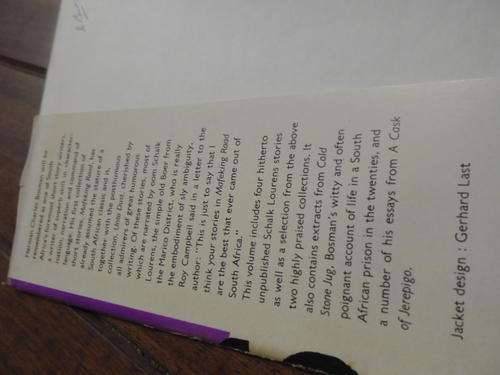 Herman Charles Bosman will be
remembered
a writer of
language
short stories, Mafeking Road, has
already attained the stature of a
South African classic and is,
together with the posthumous
collection, Unto Dust, cherished by
all admirers of great humorous
writing. Of these stories, most of
which are narrated by oom Schalk
Lourens, the simple old Boer from
the Marico District who is really
the embodiment of wily ambiguity,
Roy Campbell said in a letter to the
author: "This is just to say that I
think your stories in Mafeking Road
are the best that ever came out of
South Africa."
This volume includes four hitherto
unpublished Schalk Lourens stories
as well as a selection from the above
two highly praised collections. It
also contains extracts from Cold
Stone Jug, Bosman's witty and often
poignant account of life in a South
African prison in the twenties, and
a number of his essays from A Cask
of Jerepigo.
Jacket design : Gerhard Last